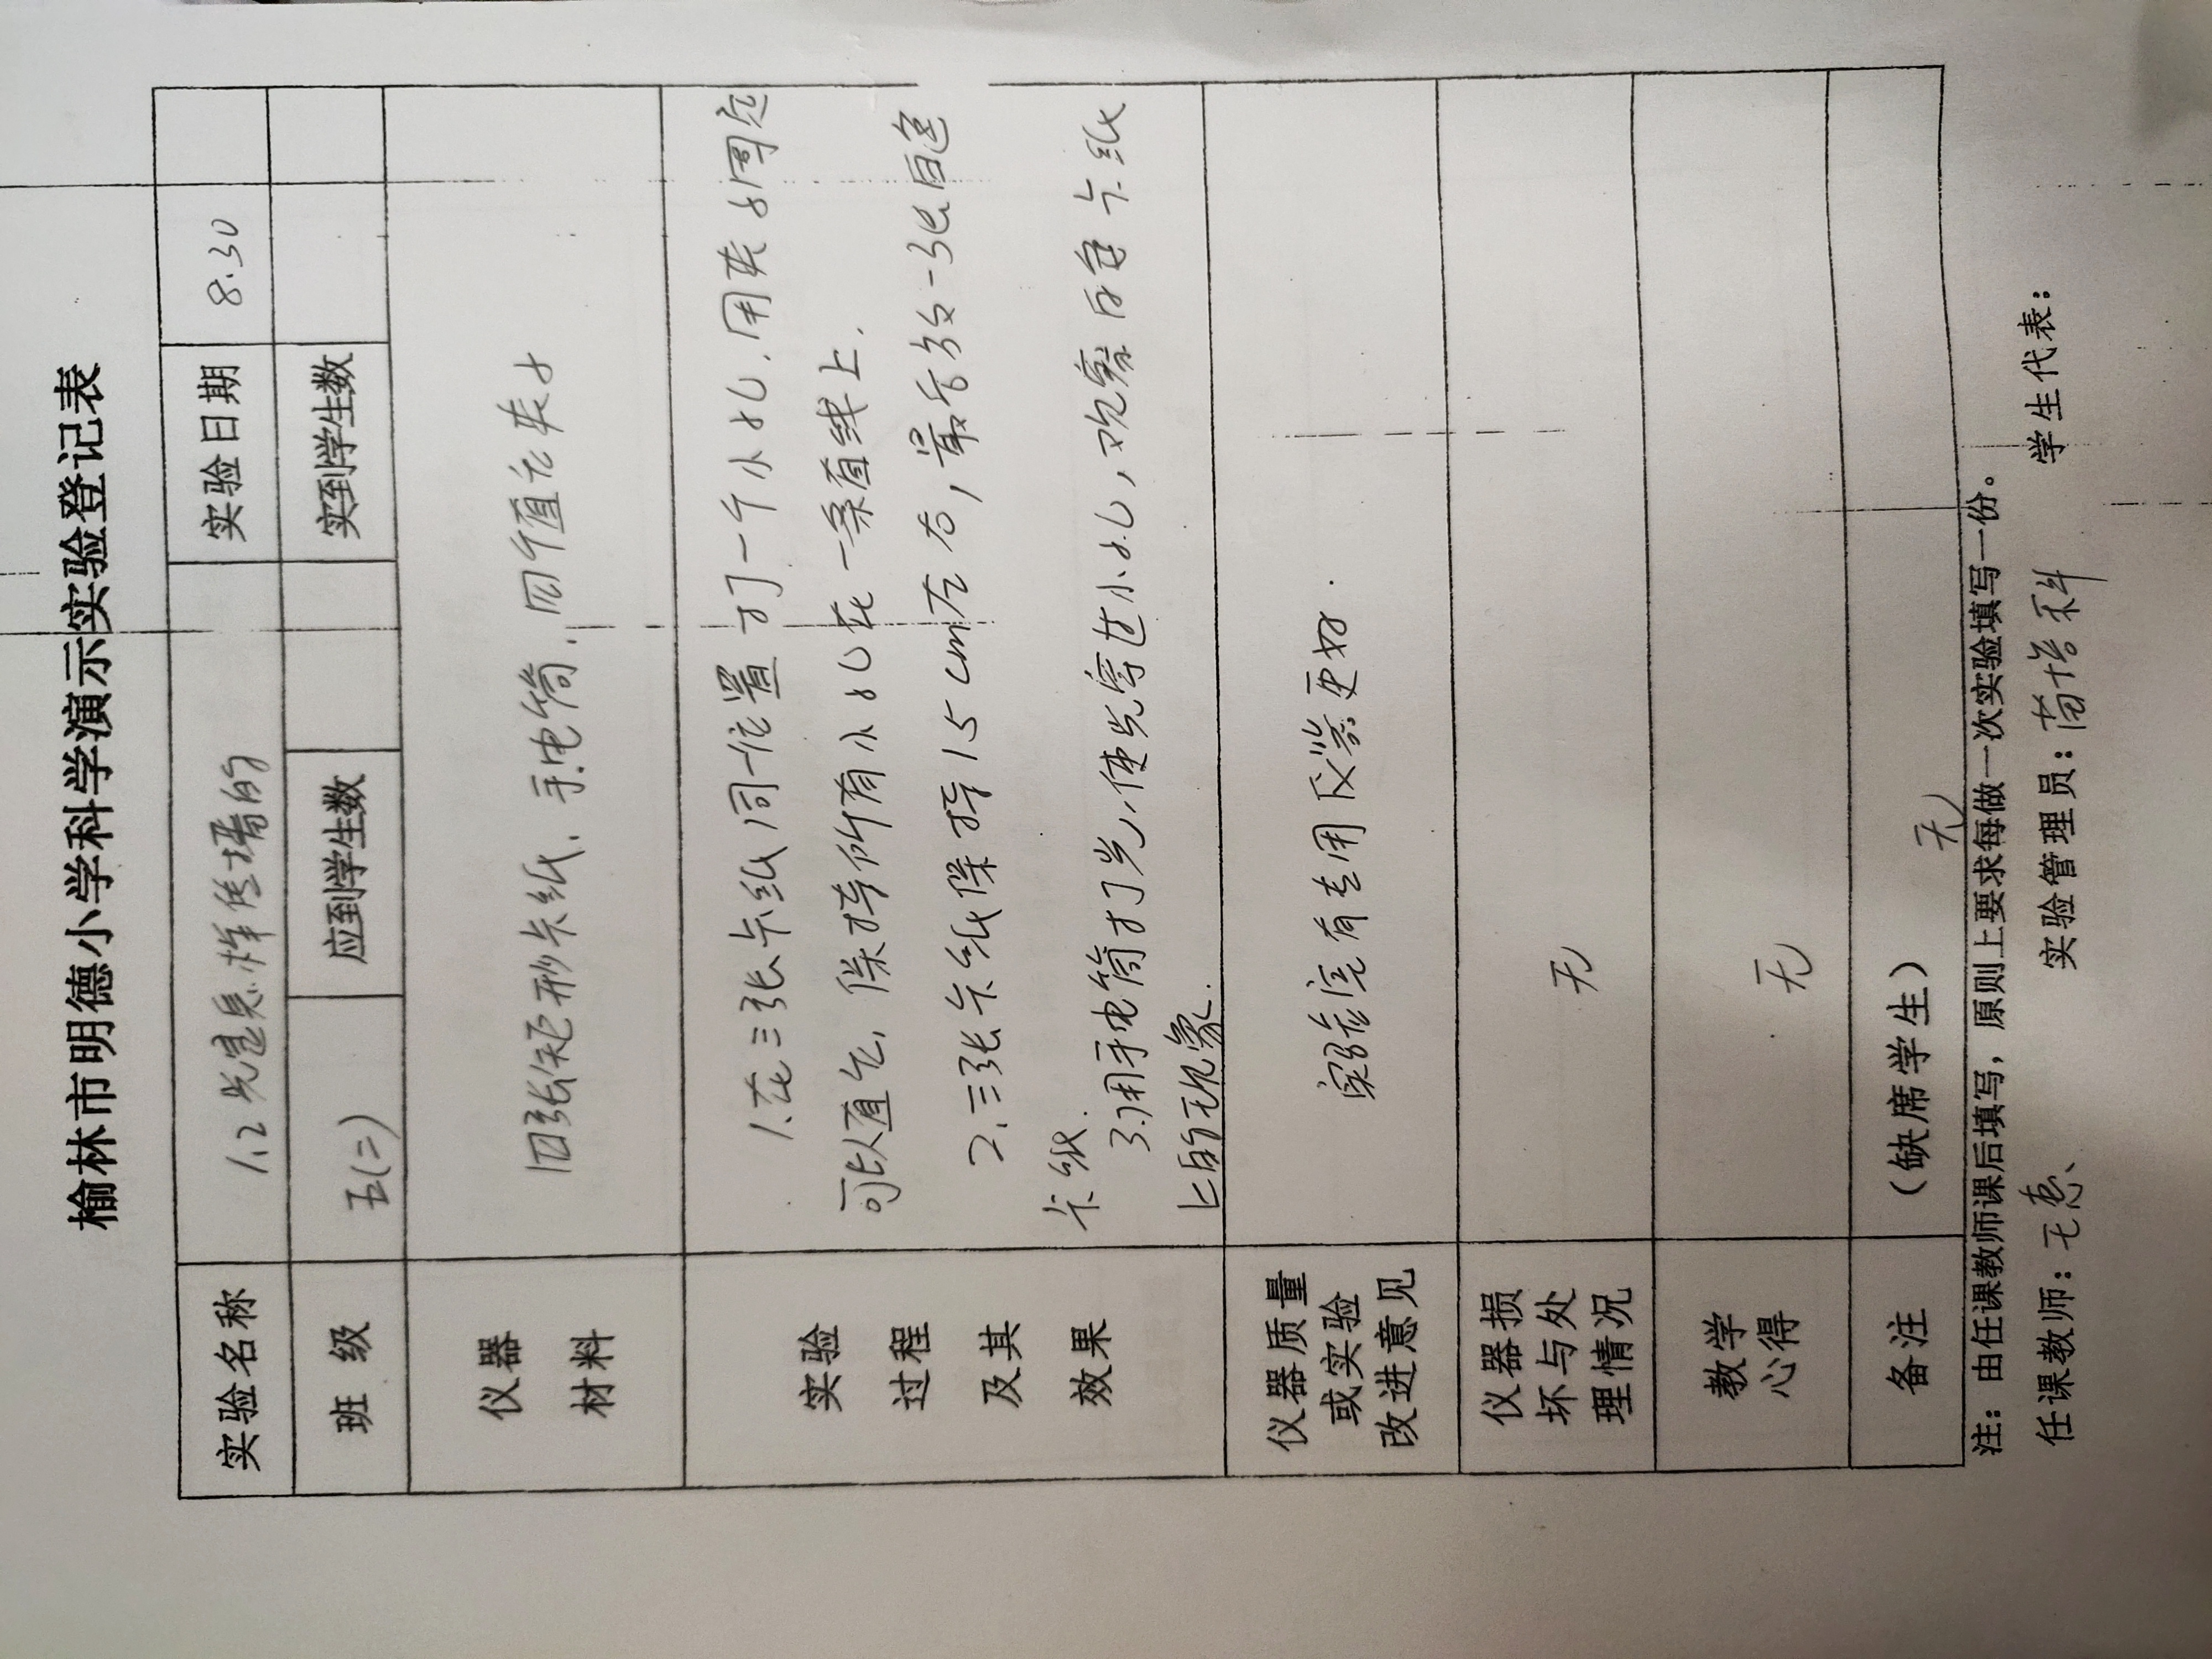 榆林市明德小学科学演示实验登记表
实验名称 1.2 光是怎样传播的 实验日期 8.30
班 级 五(二) 应到学生数 实到学生数
仪器
材料
四张矩形卡纸、手电筒、四个直立夹子
实验
过程
及其
效果
1.在三张卡纸同一位置打一个小孔.用夹子固定
可以直立,保持所有小孔在一条直线上.
2.三张卡纸保持15cm左右,最后放一张白色
卡纸.
3.用手电筒打光,使光穿过小孔,观察白色卡纸
上的现象.
仪器质量
或实验
改进意见
实验室有专用仪器更好.
仪器损
坏与处
理情况
无
教学
心得
无
备注 (缺席学生) 无
注:由任课教师课后填写,原则上要求每做一次实验填写一份。
任课教师: 实验管理员:苗培科 学生代表: